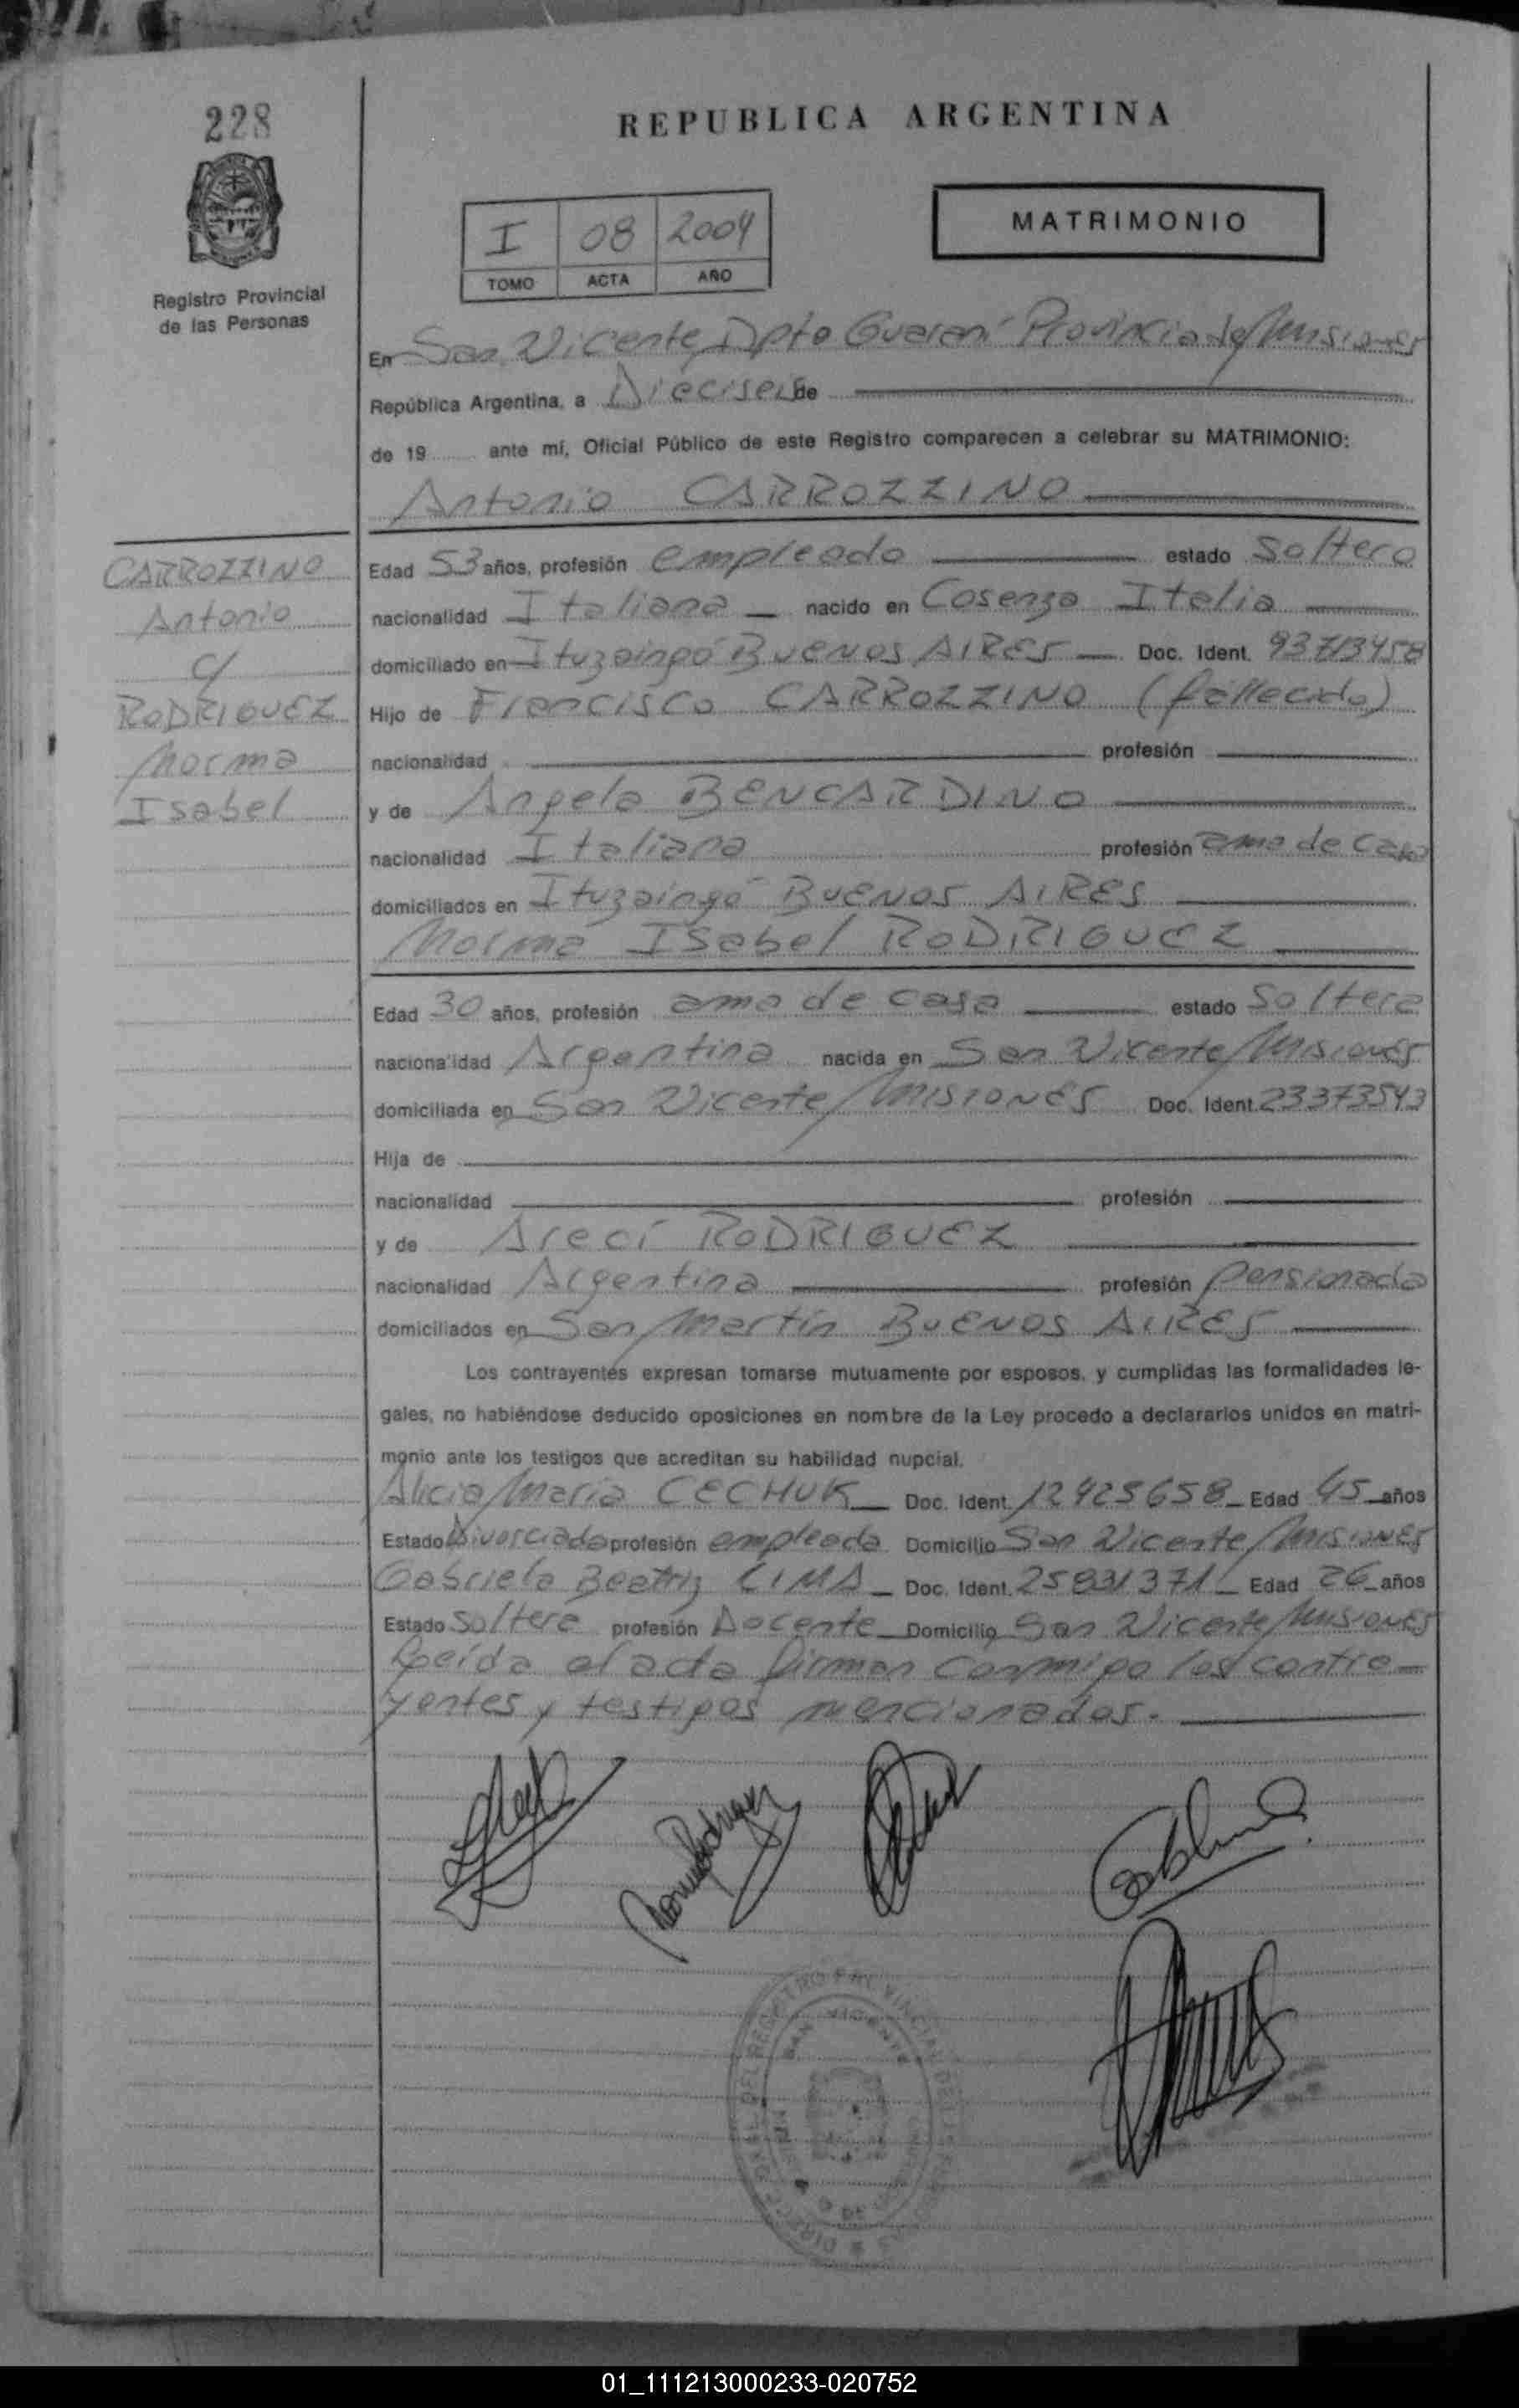 228
REPUBLICA ARGENTINA
I 08 2004
TOMO ACTA AÑO
MATRIMONIO
Registro Provincial
de las Personas
En San Vicente Dpto Guaraní Provincia de Misiones
República Argentina, a Dieciseis de
de 19 ante mí, Oficial Público de este Registro comparecen a celebrar su MATRIMONIO:
Antonio CARROZZINO
CARROZZINO
Antonio
c/
RODRIGUEZ
Norma
Isabel
Edad 53 años, profesión empleado estado Soltero
nacionalidad Italiana nacido en Cosenza Italia
domiciliado en Ituzaingó BUENOS AIRES Doc. Ident. 93713458
Hijo de Francisco CARROZZINO (fallecido)
nacionalidad profesión
y de Angela BENCARDINO
nacionalidad Italiana profesión ama de casa
domiciliados en Ituzaingó BUENOS AIRES
Norma Isabel RODRIGUEZ
Edad 30 años, profesión ama de casa estado Soltera
nacionalidad Argentina nacida en San Vicente Misiones
domiciliada en San Vicente MISIONES Doc. Ident. 23373543
Hija de
nacionalidad profesión
y de Arecí RODRIGUEZ
nacionalidad Argentina profesión pensionada
domiciliados en San Martín BUENOS AIRES
Los contrayentes expresan tomarse mutuamente por esposos, y cumplidas las formalidades le-
gales, no habiéndose deducido oposiciones en nombre de la Ley procedo a declararlos unidos en matri-
monio ante los testigos que acreditan su habilidad nupcial.
Alicia María CECHUK Doc. Ident. 12425658 Edad 45 años
Estado Divorciada profesión empleada Domicilio San Vicente Misiones
Gabriela Beatriz LIMA Doc. Ident. 25831371 Edad 26 años
Estado Soltera profesión Docente Domicilio San Vicente Misiones
Leída el acta firman conmigo los contra-
yentes y testigos mencionados.
SAN VICENTE
01_111213000233-020752